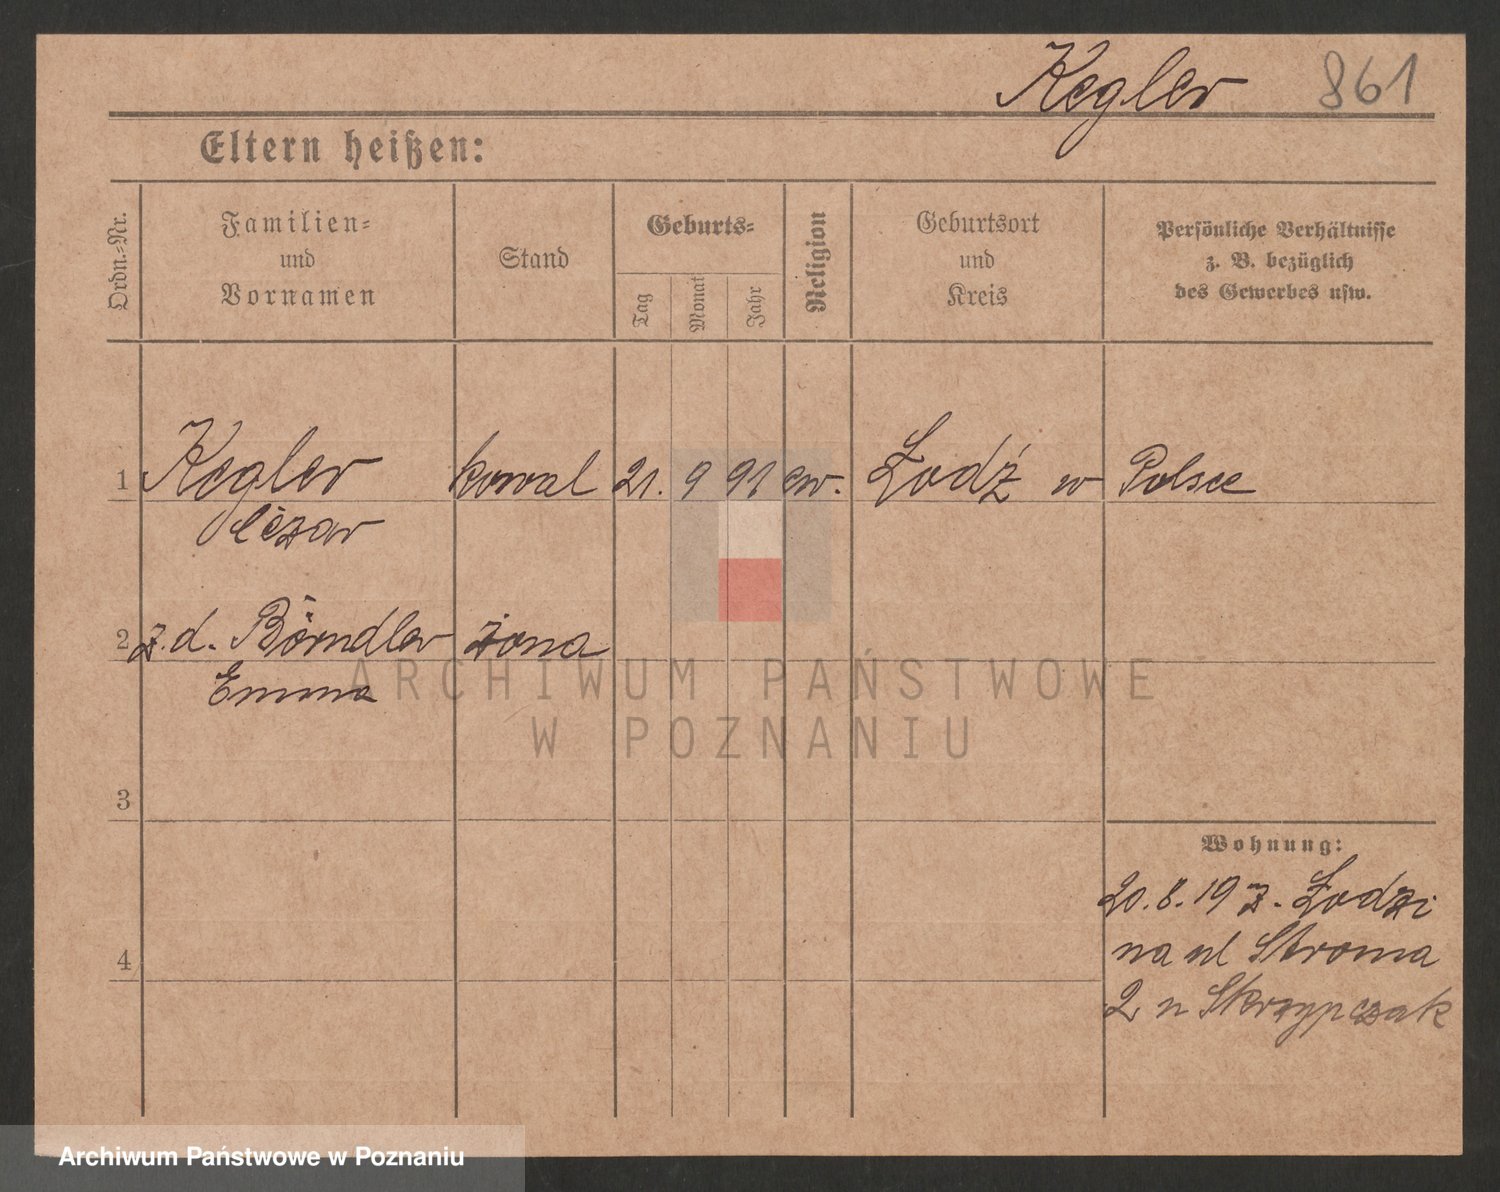 Kegler 861
Eltern heißen:
Ordn.-Nr.
Familien-
und
Vornamen
Stand
Geburts-
Tag
Monat
Jahr
Religion
Geburtsort
und
Kreis
Persönliche Verhältnisse
z. B. bezüglich
des Gewerbes usw.
1 Kegler kowal 21. 9 91 ew. Łodź w Polsce
Cezar
2 z. d. Börndler żona
Emma
ARCHIWUM PAŃSTWOWE
W POZNANIU
3
Wohnung:
20.8.19 z. Łodzi
na ul Stroma
4
2 u Skrzypczak
Archiwum Państwowe w Poznaniu